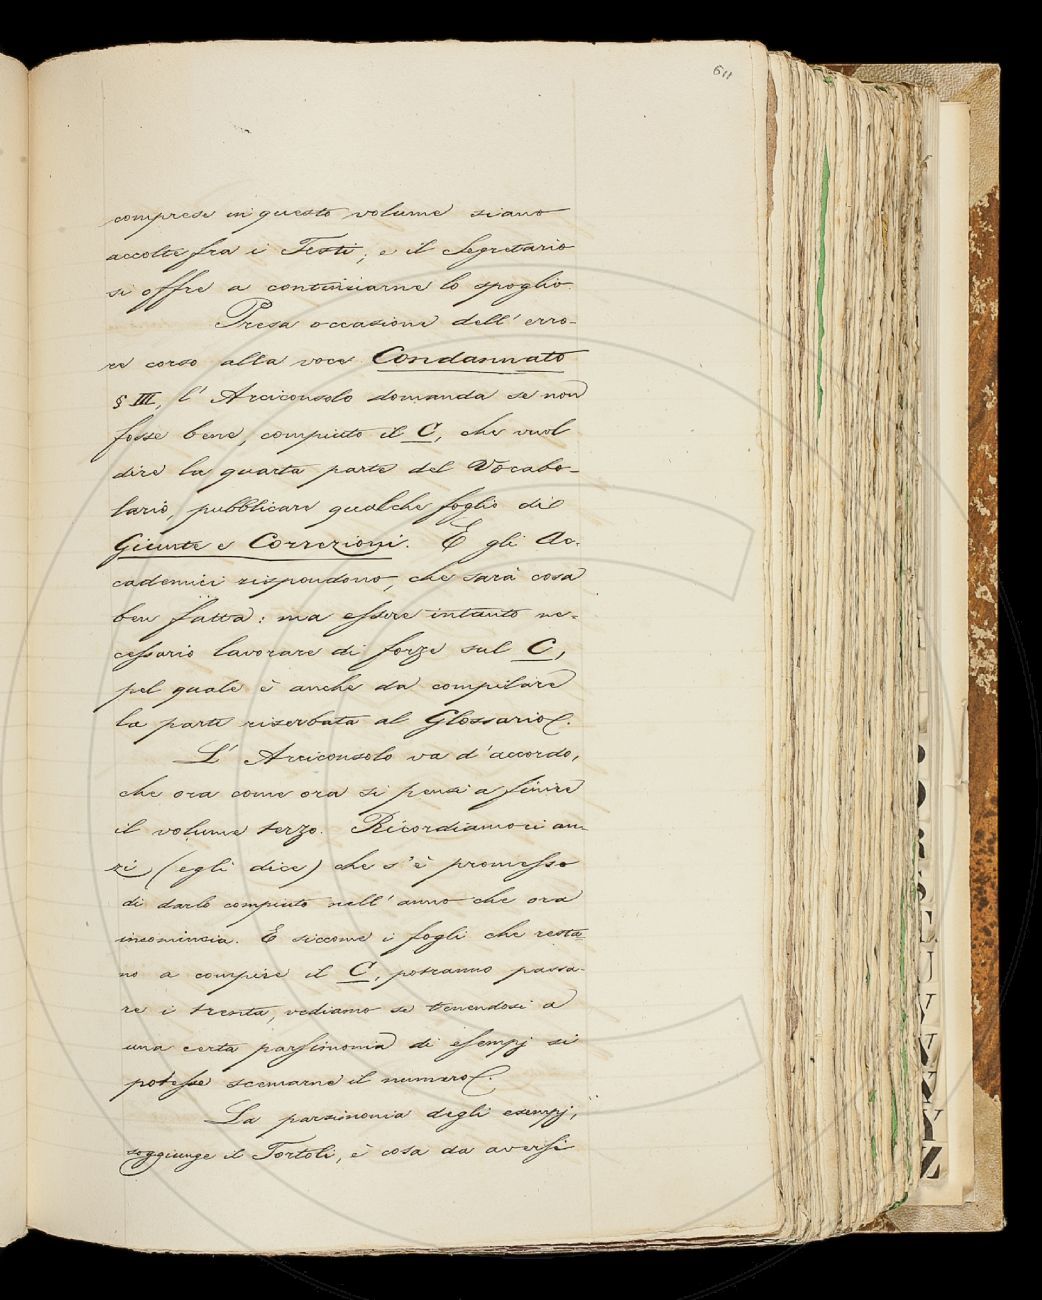 611
comprese in questo volume siano
accolte fra i Testi; e il Segretario
si offre a continuarne lo spoglio.
Presa occasione dell' erro-
re corso alla voce Condannato
§ III, l' Arciconsolo domanda se non
fosse bene, compiuto il C, che vuol
dire la quarta parte del Vocabo-
lario, pubblicare qualche foglio di
Giunte e Correzioni. E gli Ac-
cademici rispondono, che sarà cosa
ben fatta: ma essere intanto ne-
cessario lavorare di forze sul C,
pel quale è anche da compilare
la parte riserbata al Glossario.
L' Arciconsolo va d' accordo,
che ora come ora si pensi a finire
il volume terzo. Ricordiamoci an-
zi (egli dice) che s' è promesso
di darlo compiuto nell' anno che ora
incomincia. E siccome i fogli che resta-
no a compire il C, potranno passa-
re i trenta, vediamo se tenendosi a
una certa parsimonia di esempj si
potesse scemarne il numero.
La parsimonia degli esempj,
soggiunge il Tortoli, è cosa da aversi
R
S
T
U
V
X
Y
Z